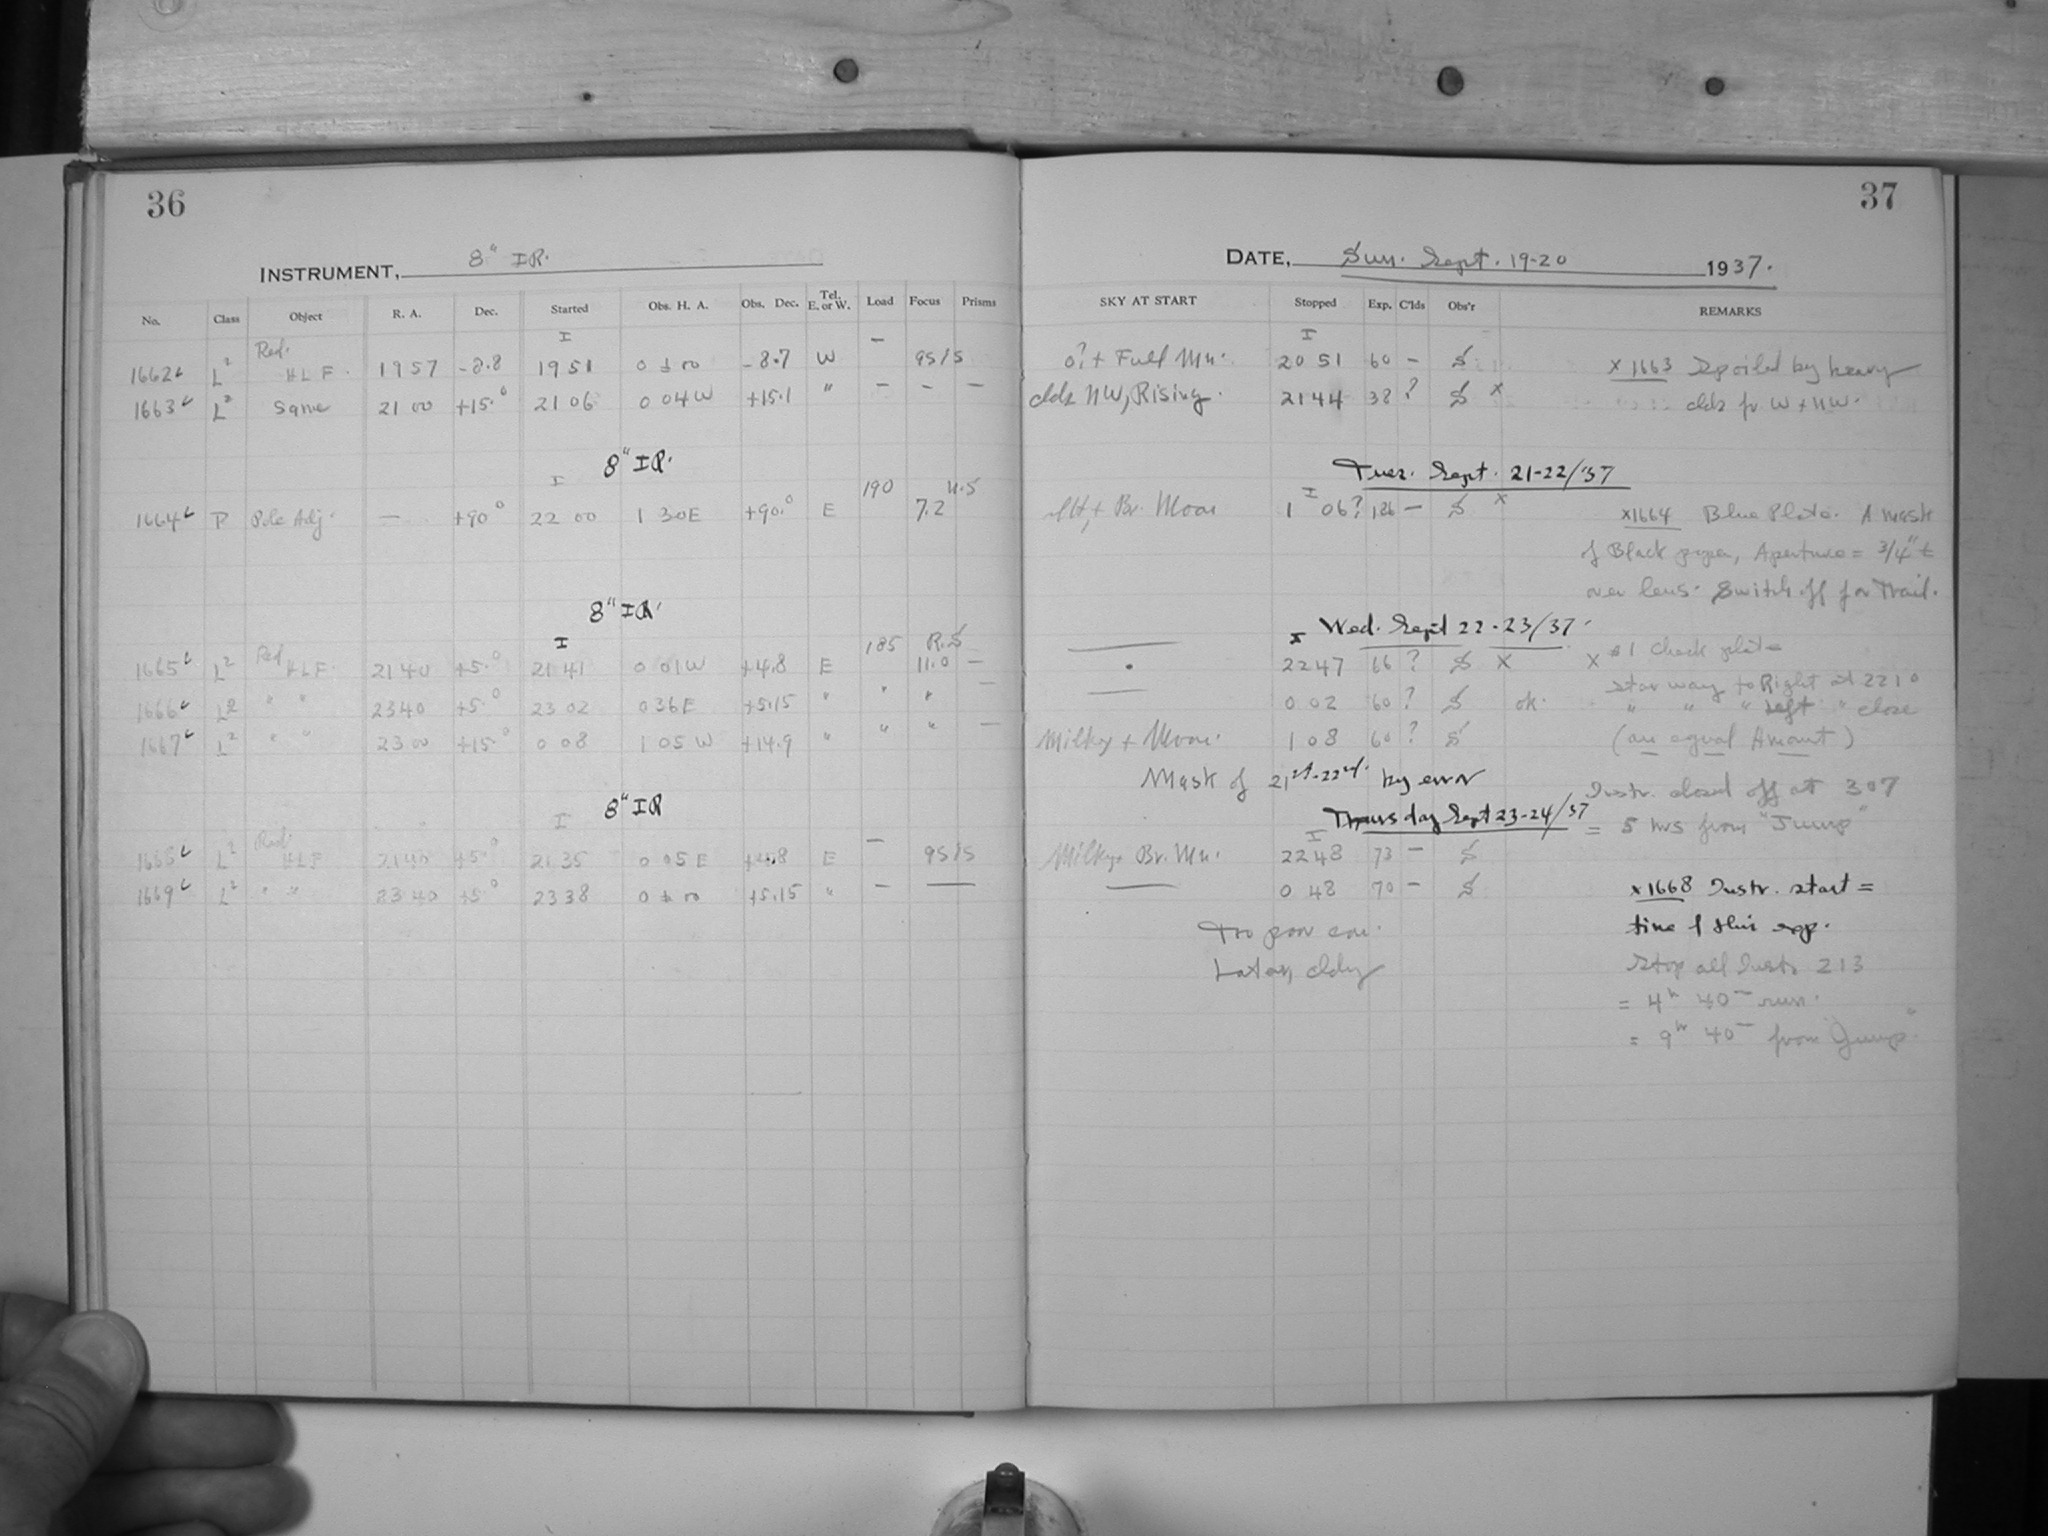 36
INSTRUMENT, 8" IR.
No. Class Object R. A. Dec. Started Obs. H. A. Obs. Dec. Tel. E. or W. Load Focus Prisms
I —
Red.
1662 L2 HLF. 1957 -8.8 1951 0 ± 00 -8.7 W 95/5
1663 L2 Same 21 00 +15.0 21 06 0 04 W +15.1 " — — —
8" IR.
I 190 4.5
1664 P Pole Adj. — +90° 22 00 1 30 E +90.° E 7.2
8" IR.
I 185 R.S
Red
1665 L2 HLF. 21 40 +5.0 21 41 0 01 W +4.8 E 11.0 —
1666 L2 " " 23 40 +5.0 23 02 0 36 E +5.15 " " " —
1667 L2 " " 23 00 +15.0 0 08 1 05 W +14.9 " " " —
8" IR
I —
Red.
L2 HLF 21 40 +5.0 21 35 0 05 E E 95/5
1669 L2 " " 23 40 +5.0 23 38 0 ± 00 +5.15 " — —
37
DATE, Sun. Sept. 19-20 1937.
SKY AT START Stopped Exp. C'lds Obs'r REMARKS
I
+ Full Mn. 20 51 60 — S x 1663 Spoiled by heavy
clds NW, Rising. 21 44 38 ? S x clds fr W + NW.
Tues. Sept. 21-22/37
I
+ Br. Moon 1 06? 126 — S x x1664 Blue Plate. A mask
of Black paper, Aperture = 3/4" ±
over lens. Switch off for Trail.
Wed. Sept 22-23/37.
I
22 47 66 ? S x x #1 Check plate
Star way to Right at 2210
0 02 60 ? S ok. " " " Left " close
Milky + Moon. 1 08 60 ? S (an equal Amount)
Mask of 21st-22nd. by error
Instr. closed off at 307
Thursday Sept 23-24/37
= 5 hrs from "Jump"
I
Milky + Br. Mn. 22 48 73 — S
— 0 48 70 — S x1668 Instr. start =
time of this exp.
Too poor con.
Stop all Instr 213
Later, cldy
= 4h 40m run.
= 9h 40m from "Jump"